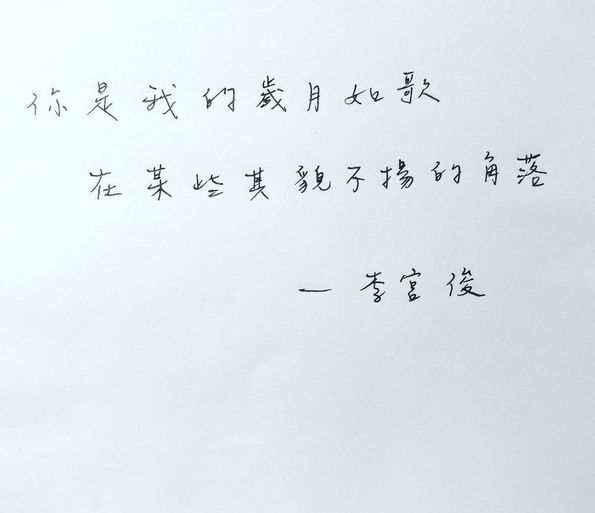 你是我的歲月如歌
在某些其貌不揚的角落
— 李宮俊